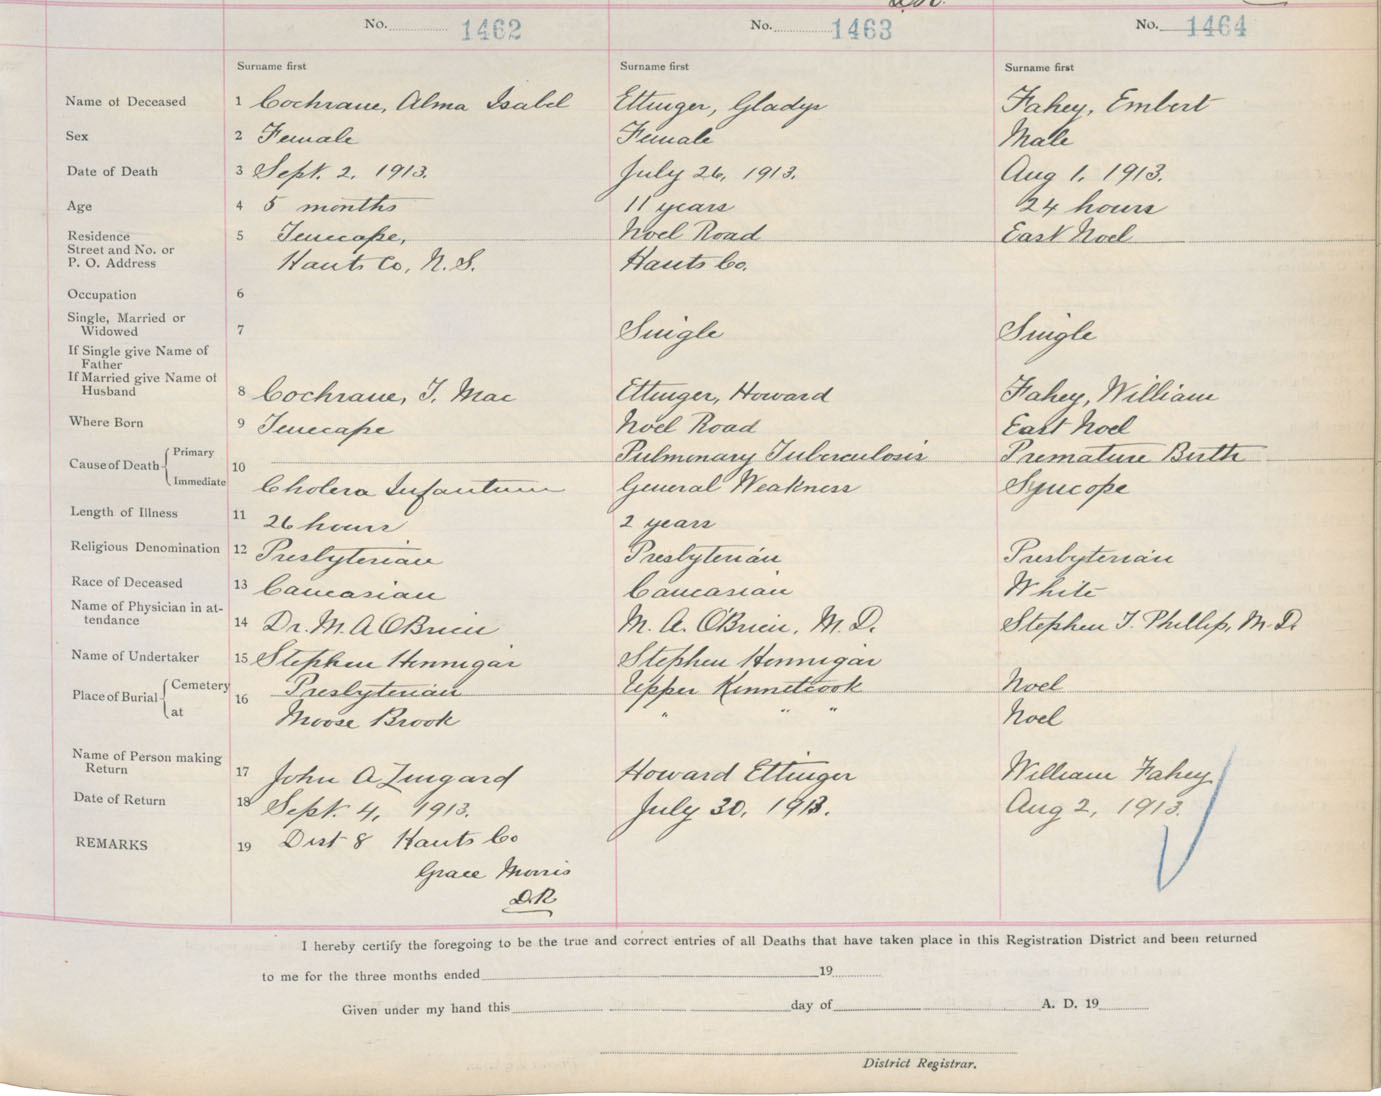 D.R.
No. 1462 No. 1463 No. 1464
Surname first Surname first Surname first
Name of Deceased 1 Cochrane, Alma Isabel Ettinger, Gladys Fahey, Embert
Sex 2 Female Female Male
Date of Death 3 Sept. 2, 1913. July 26, 1913. Aug 1, 1913.
Age 4 5 months 11 years 24 hours
Residence 5 Tenecape, Noel Road East Noel
Street and No. or
P. O. Address Hants Co, N.S. Hants Co.
Occupation 6
Single, Married or
Widowed 7 Single Single
If Single give Name of
Father
If Married give Name of
Husband 8 Cochrane, T. Mac Ettinger, Howard Fahey, William
Where Born 9 Tenecape Noel Road East Noel
Cause of Death Primary 10 Pulmonary Tuberculosis Premature Birth
Immediate Cholera Infantum General Weakness Syncope
Length of Illness 11 26 hours 2 years
Religious Denomination 12 Presbyterian Presbyterian Presbyterian
Race of Deceased 13 Caucasian Caucasian White
Name of Physician in at-
tendance 14 Dr. M. A O'Brien M. A. O'Brien, M.D. Stephen T. Phillip, M.D.
Name of Undertaker 15 Stephen Hennigar Stephen Hennigar
Place of Burial Cemetery 16 Presbyterian Upper Kennetcook Noel
at Moose Brook " " " Noel
Name of Person making
Return 17 John A Zwigard Howard Ettinger William Fahey
Date of Return 18 Sept. 4, 1913. July 30, 1913. Aug 2, 1913.
REMARKS 19 Dist 8 Hants Co
Grace Morris
D.R
I hereby certify the foregoing to be the true and correct entries of all Deaths that have taken place in this Registration District and been returned
to me for the three months ended 19
Given under my hand this day of A. D. 19
District Registrar.